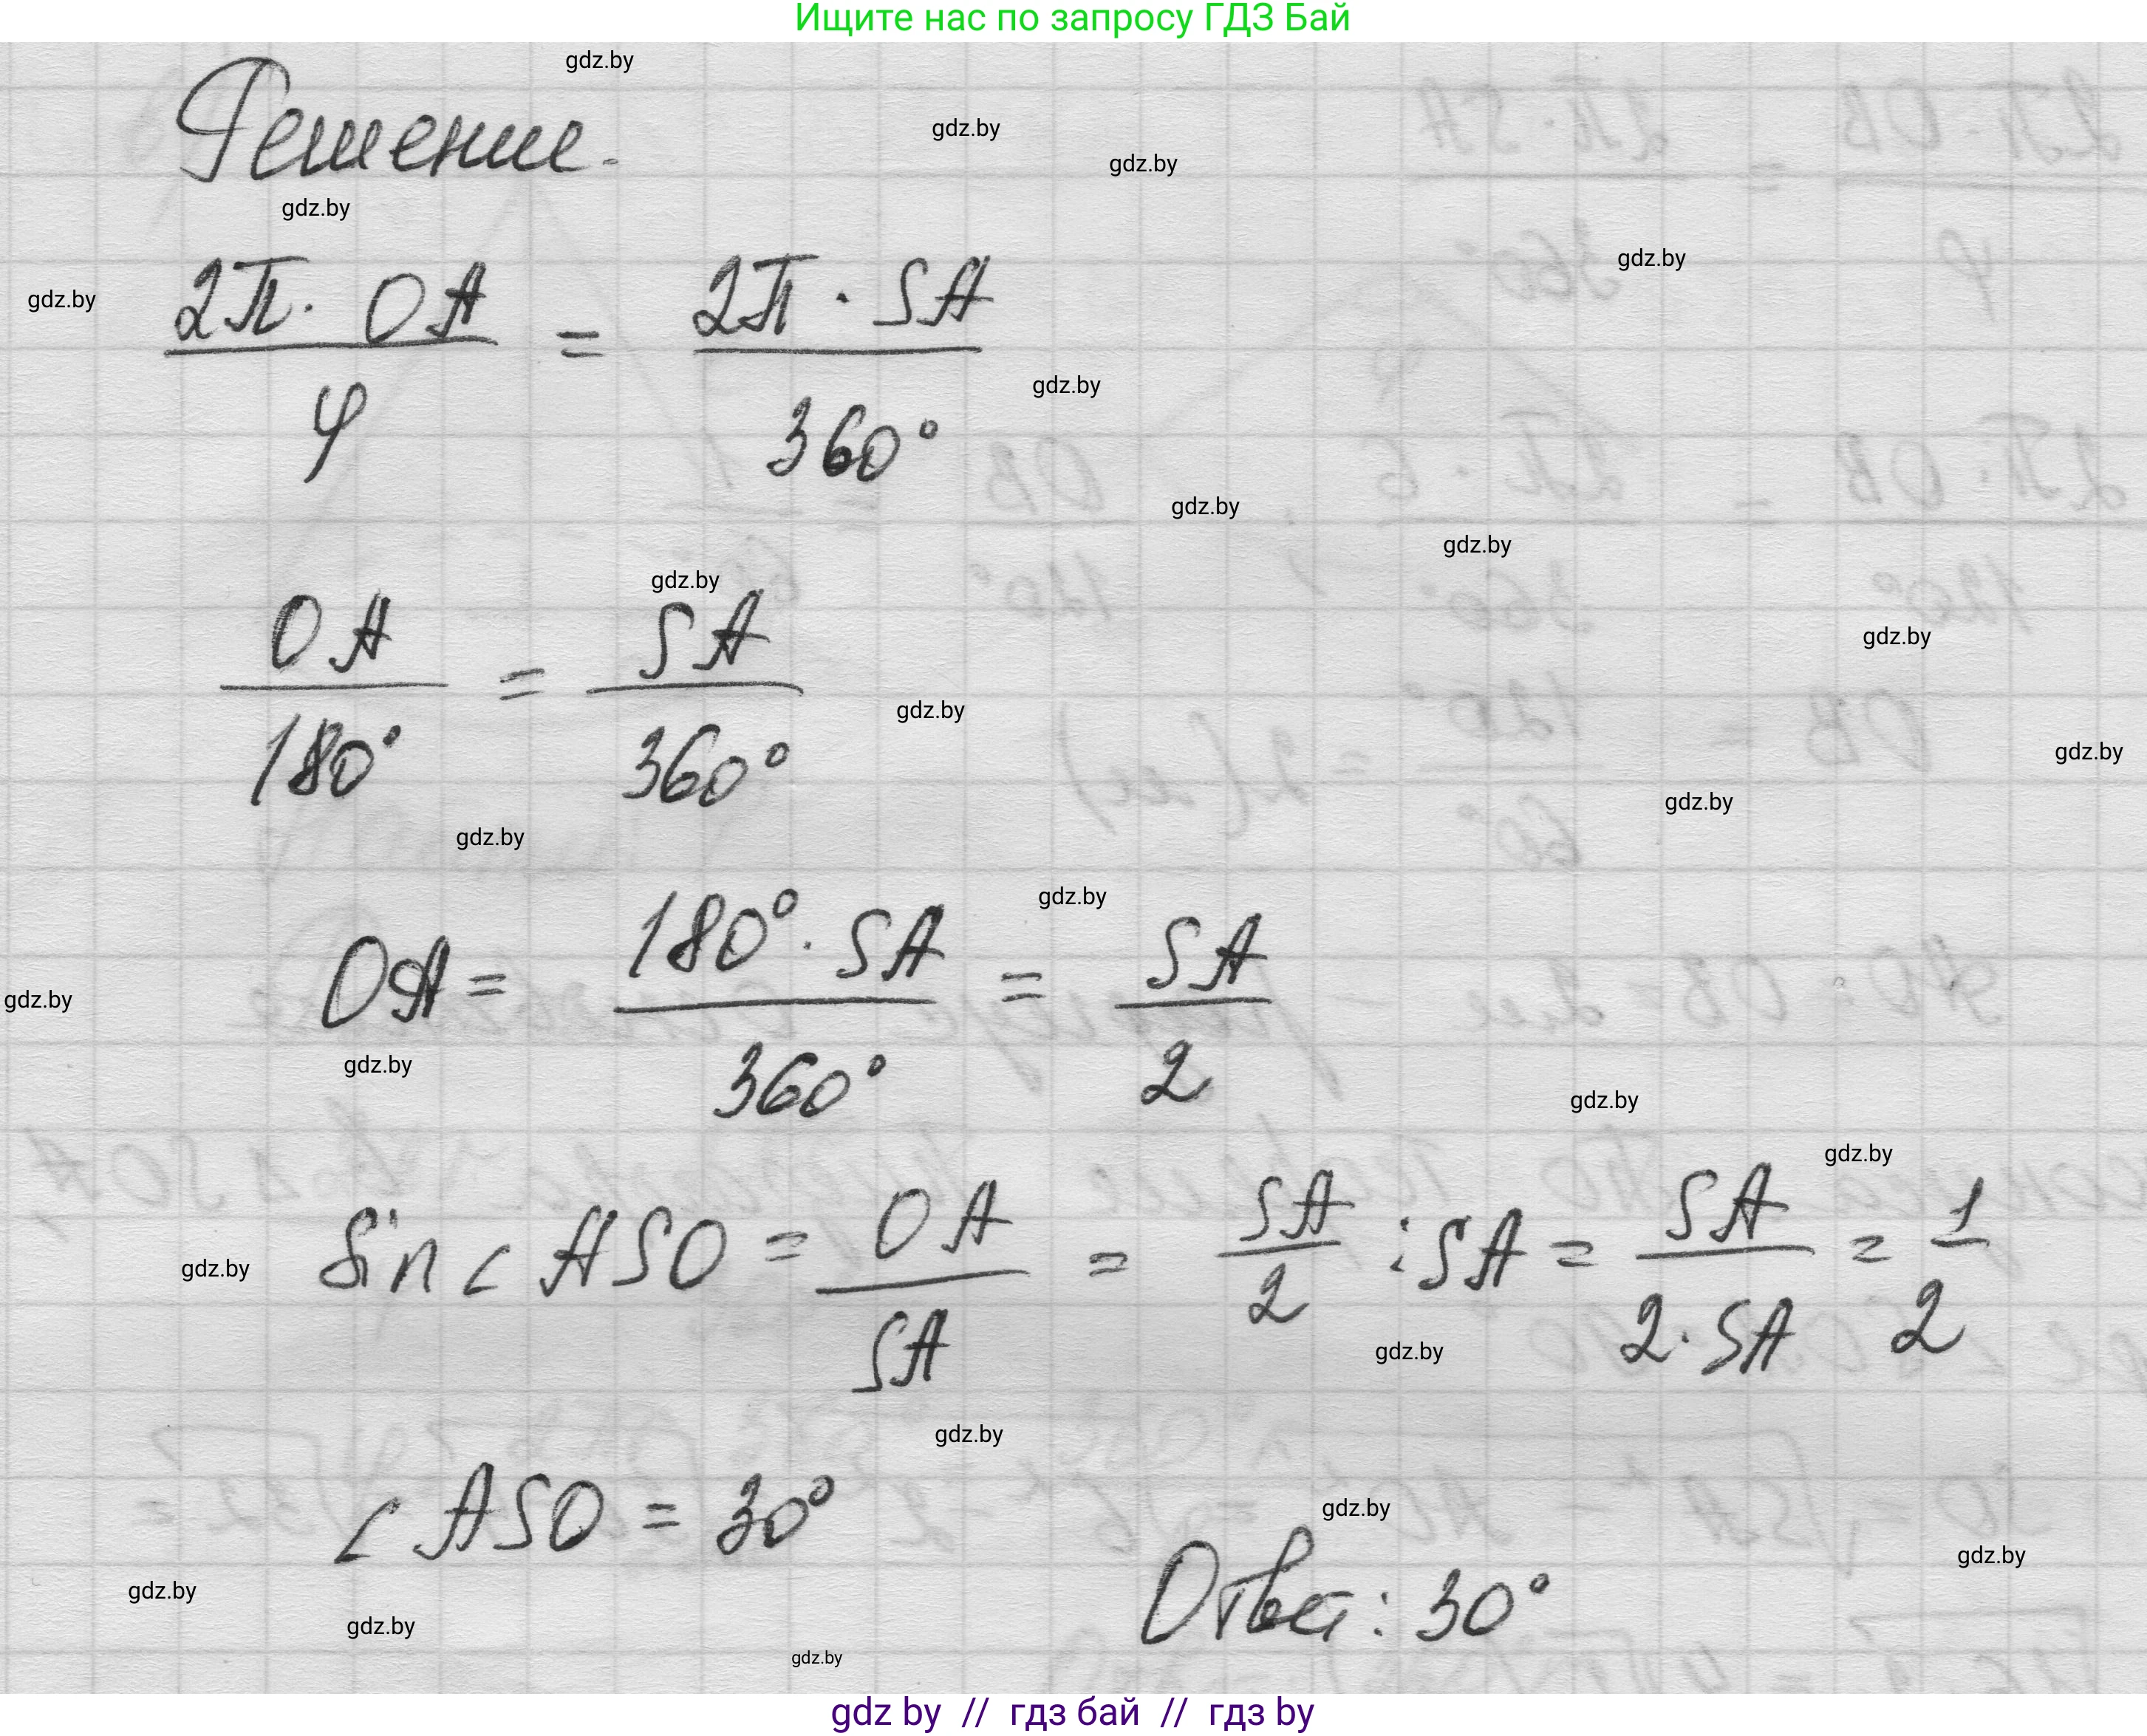 Ищите нас по запросу ГДЗ Бай
gdz.by
Решение.
gdz.by
gdz.by
gdz.by
gdz.by
gdz.by
2π · OA / φ = 2π · SA / 360°
gdz.by
gdz.by
gdz.by
gdz.by
OA / 180° = SA / 360°
gdz.by
gdz.by
gdz.by
gdz.by
gdz.by
gdz.by
OA = 180° · SA / 360° = SA / 2
gdz.by
gdz.by
gdz.by
gdz.by
Sin ∠ ASO = OA / SA = SA / 2 : SA = SA / 2 · SA = 1 / 2
gdz.by
gdz.by
gdz.by
∠ ASO = 30°
gdz.by
gdz.by
Ответ: 30°
gdz.by
gdz.by
gdz.by
gdz by // гдз бай // гдз by